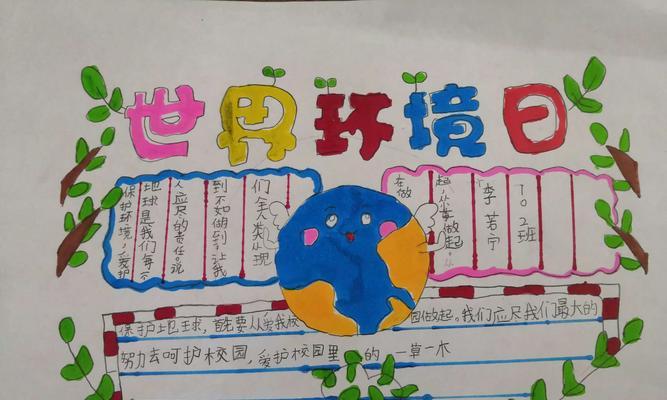 世界环境日
保护环境，爱护
地球是我们每个
人应尽的责任。说
到不如做到，让我
们全人类从现
在做
起，从我做起。
李若宁
702班
保护地球，首要从爱我校园做起。我们应尽我们最大的
努力去呵护校园，爱护校园里的一草一木